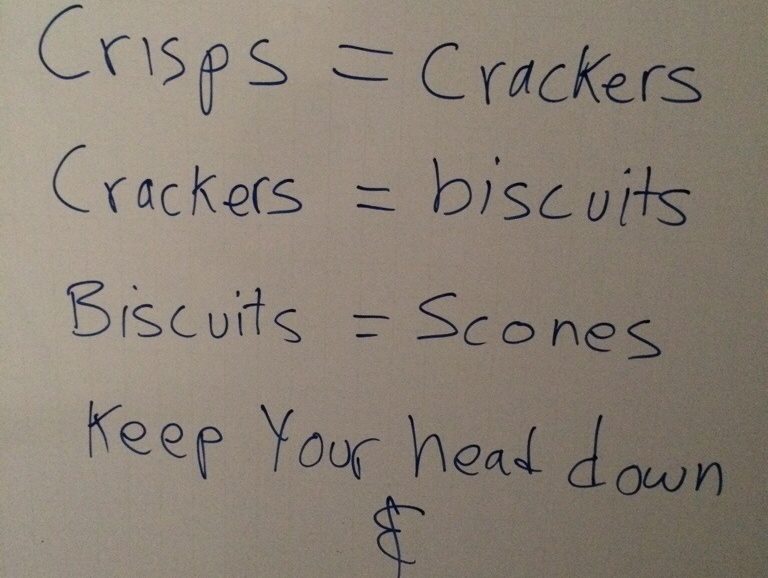 Crisps = Crackers
Crackers = biscuits
Biscuits = Scones
Keep Your head down
&